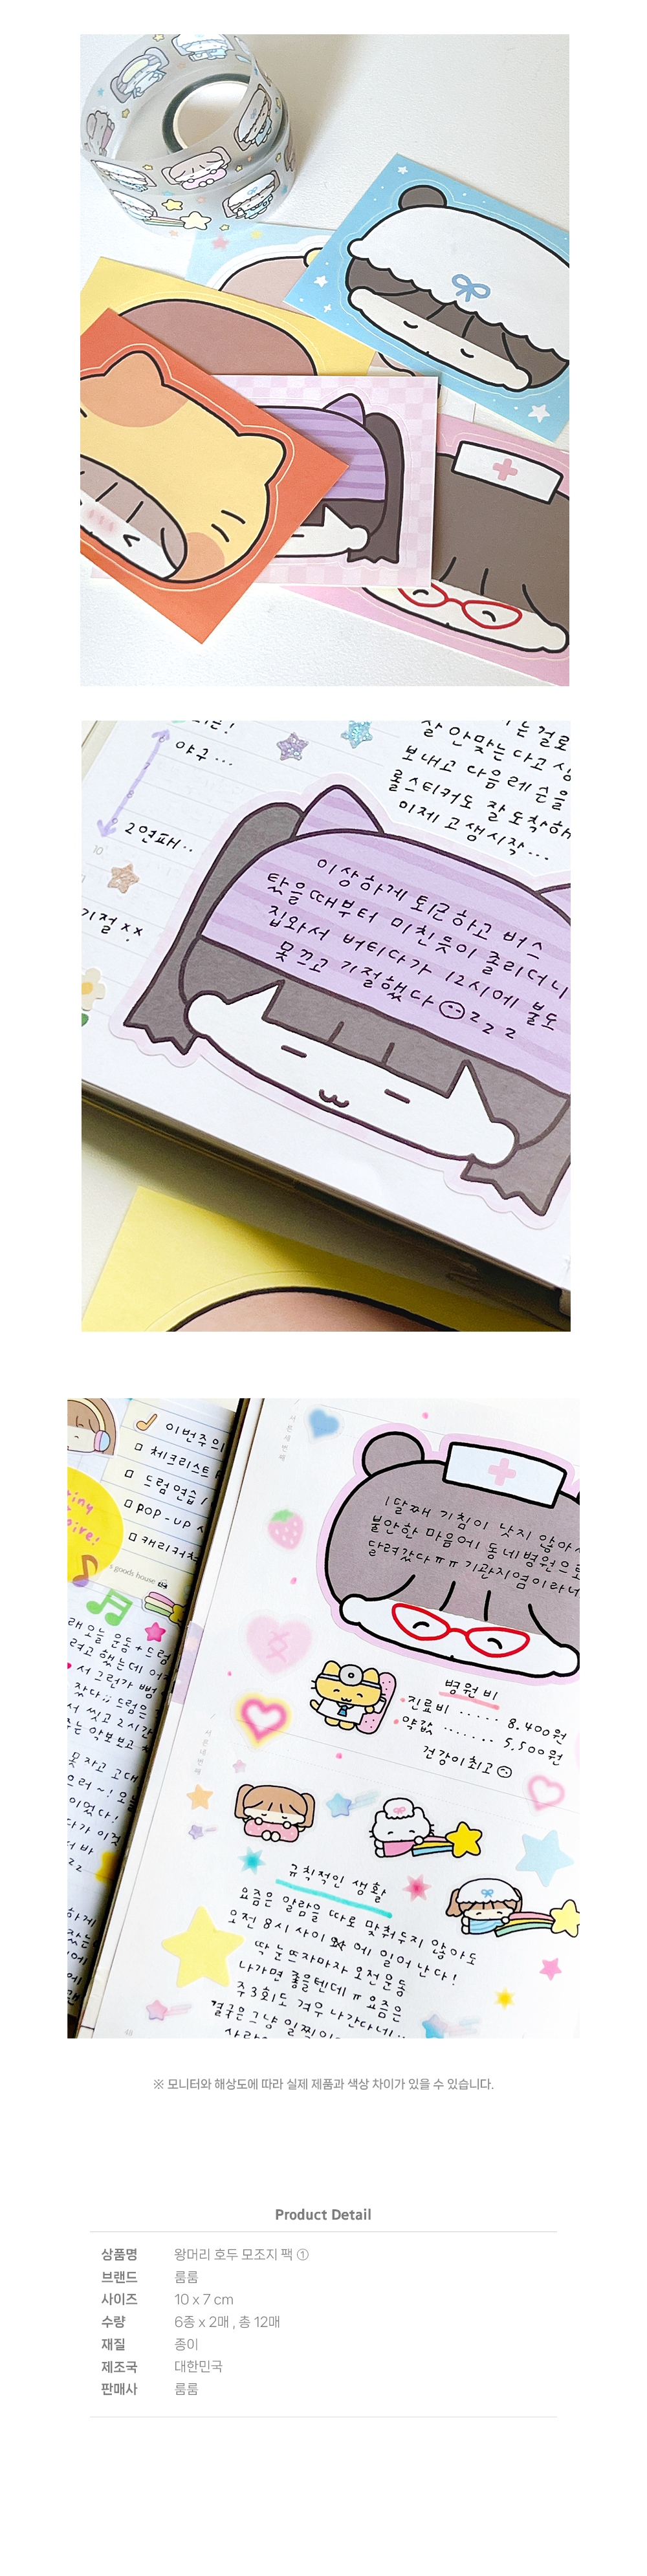 야구...
2연패..
10
기절xx
는 걸로
잘 안맞는다고
보내고 다음 레슨을
롤스티커도 잘 도착해
이제 고생시작...
이상하게 퇴근하고 버스
탔을때부터 미친듯이 졸리더니
집와서 버티다가 12시에 불도
못끄고 기절했다 zzz
이번주의
체크리스트
드럼연습 /
POP-UP
캐리커쳐
goods house
오늘 운동 + 드럼
려고 했는데
서 그런가
잤다;; 드럼은
서 씻고 2시간
는 악보보고
못자고 고대
으러 ~! 오늘
이었다!
다가 이것
1달째 기침이 낫지 않아
불안한 마음에 동네병원으로
달려갔다ㅠㅠ 기관지염이라네
병원비
진료비 ..... 8.400원
약값 ....... 5.500원
건강이최고
규칙적인 생활
요즘은 알람을 따로 맞춰두지 않아도
오전 8시 사이에 일어난다!
딱 눈뜨자마자 오전운동
나가면 좋을텐데ㅠ 요즘은
주3회도 겨우 나간다네..
결국은 그냥 일찍
※ 모니터와 해상도에 따라 실제 제품과 색상 차이가 있을 수 있습니다.
Product Detail
상품명 왕머리 호두 모조지 팩 ①
브랜드 룸룸
사이즈 10 x 7 cm
수량 6종 x 2매 , 총 12매
재질 종이
제조국 대한민국
판매사 룸룸